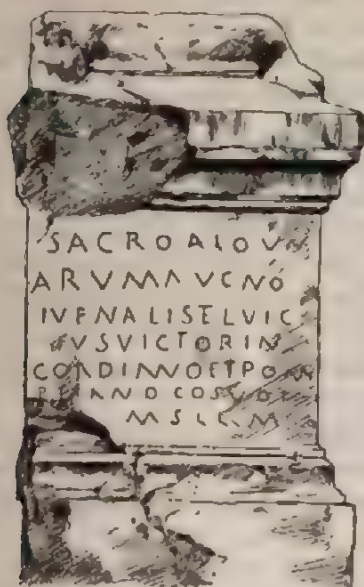 SACROALOVN
ARVMAVCNO
IVENALISELVIC
EVSVICTORIN
CORDIANOETPOM
PEIANOCOSVOT
MSLLM